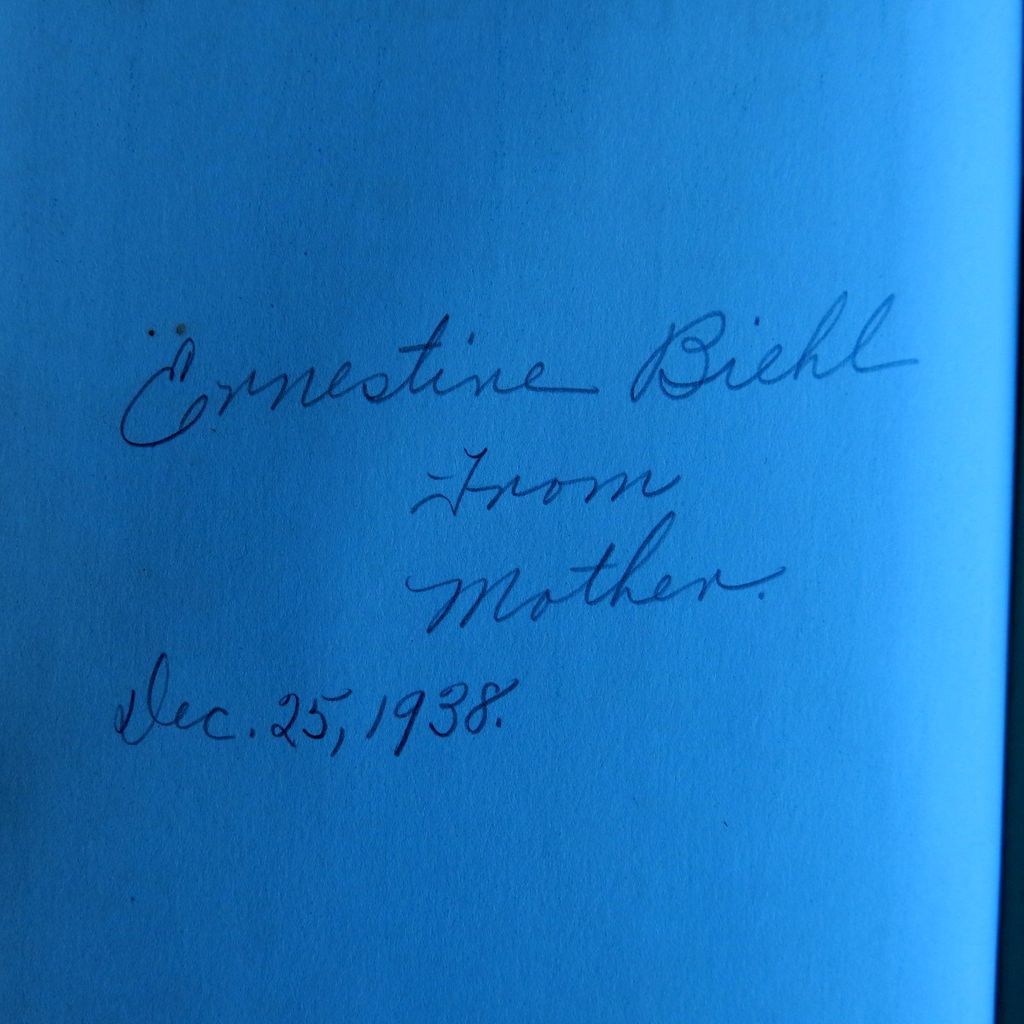 Ernestine Biehl
From
Mother.
Dec. 25, 1938.